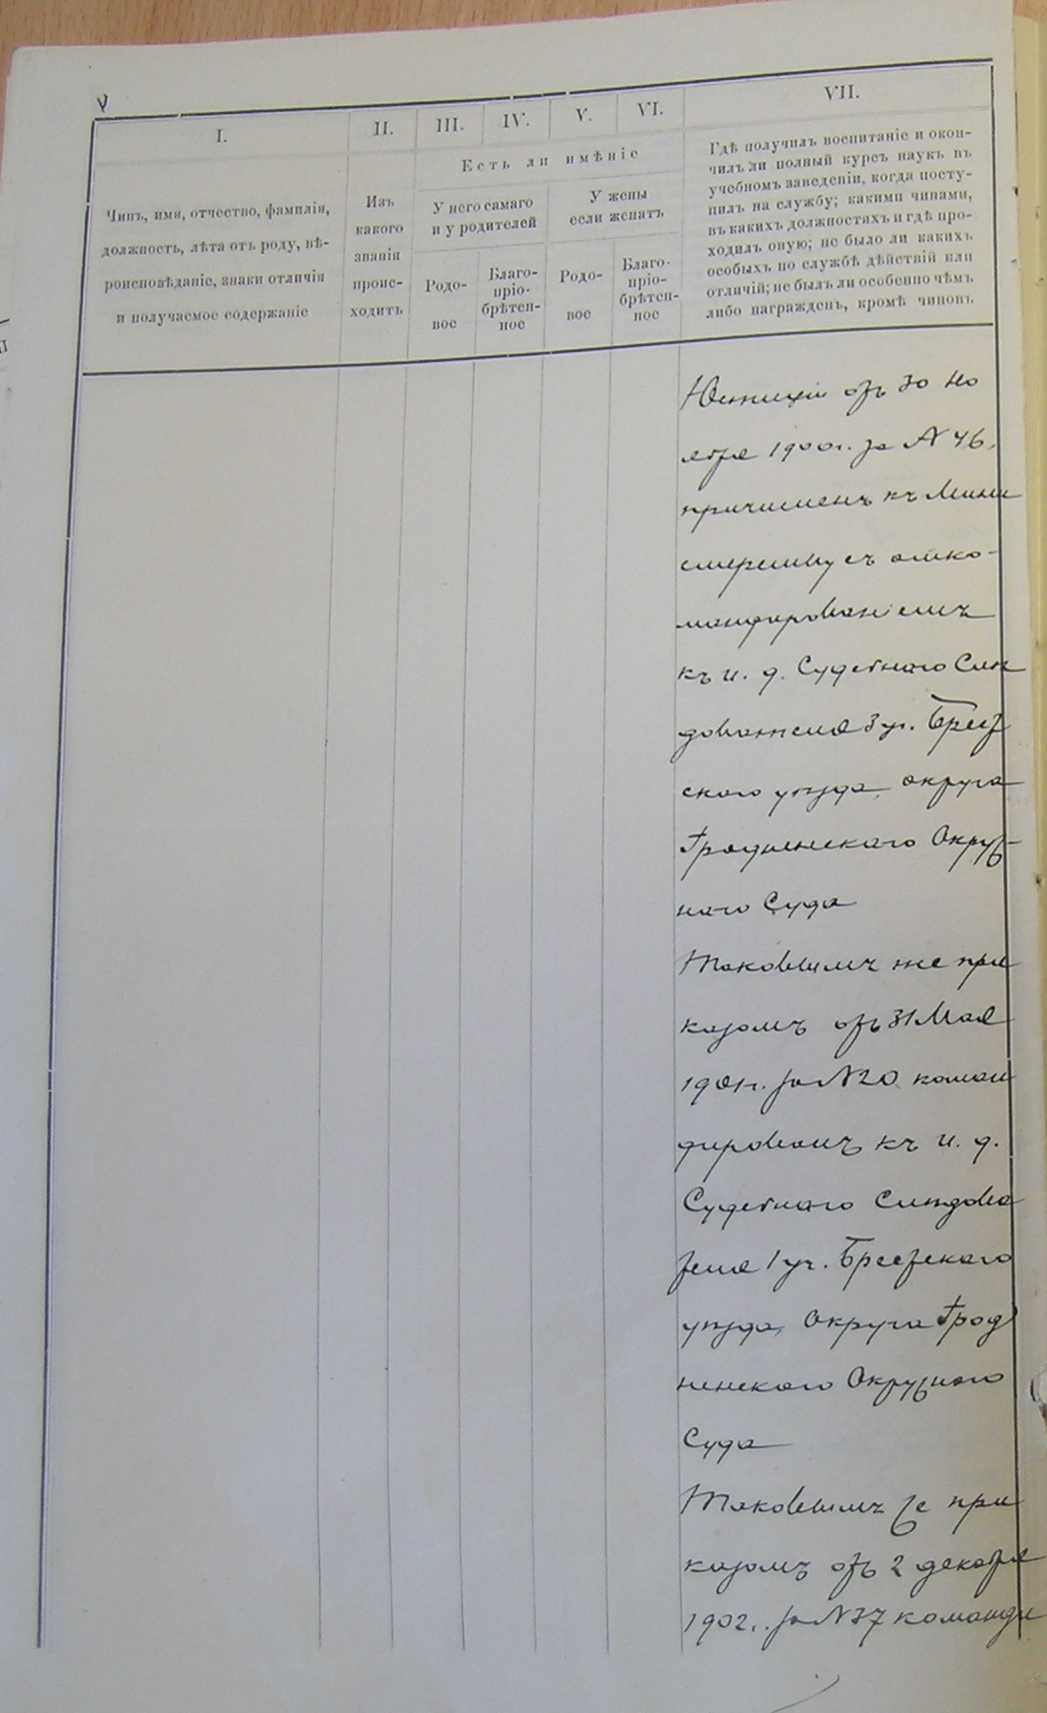 I.
II.
III.
IV.
V.
VI.
VII.
Чинъ, имя, отчество, фамилія,
должность, лѣта отъ роду, вѣ-
роисповѣданіе, знаки отличія
и получаемое содержаніе
Изъ
какого
званія
проис-
ходитъ
Есть ли имѣніе
У него самаго
и у родителей
У жены
если женатъ
Родо-
вое
Благо-
пріо-
брѣтен-
ное
Родо-
вое
Благо-
пріо-
брѣтен-
ное
Гдѣ получилъ воспитаніе и окон-
чилъ ли полный курсъ наукъ въ
учебномъ заведеніи, когда посту-
пилъ на службу; какими чинами,
въ какихъ должностяхъ и гдѣ про-
ходилъ оную; не было ли какихъ
особыхъ по службѣ дѣйствій или
отличій; не былъ ли особенно чѣмъ
либо награжденъ, кромѣ чиновъ
Юстиціи отъ 30 но
ября 1900г. за N 46,
причисленъ къ Мини
стерству съ отко-
мандированіемъ
къ и. д. Судебнаго Слѣ
дователя 3 уч. Брест
скаго уѣзда, округа
Гродненскаго Окруж-
наго Суда
Таковымъ же при
казомъ отъ 31 Мая
1901г. за N 20 коман
дированъ къ и. д.
Судебнаго Слѣдова
теля 1 уч. Брестскаго
уѣзда, Округа Грод
ненскаго Окружнаго
Суда
Таковымъ же при
казомъ отъ 2 декабря
1902г. за N 37 команди